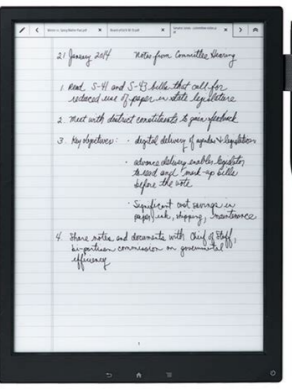 21 January 2014 Notes from Committee Hearing
1. Read S-41 and S-43 bills that call for
reduced use of paper in state legislature
2. Meet with district constituents to gain feedback
3. Key objectives: · digital delivery of agendas & legislation
· advance delivery enables legislators
to read and mark-up bills
before the vote
· Significant cost savings in
paper, ink, shipping, maintenance
4. Share notes and documents with Chief of Staff,
bi-partisan commission on governmental
efficiency